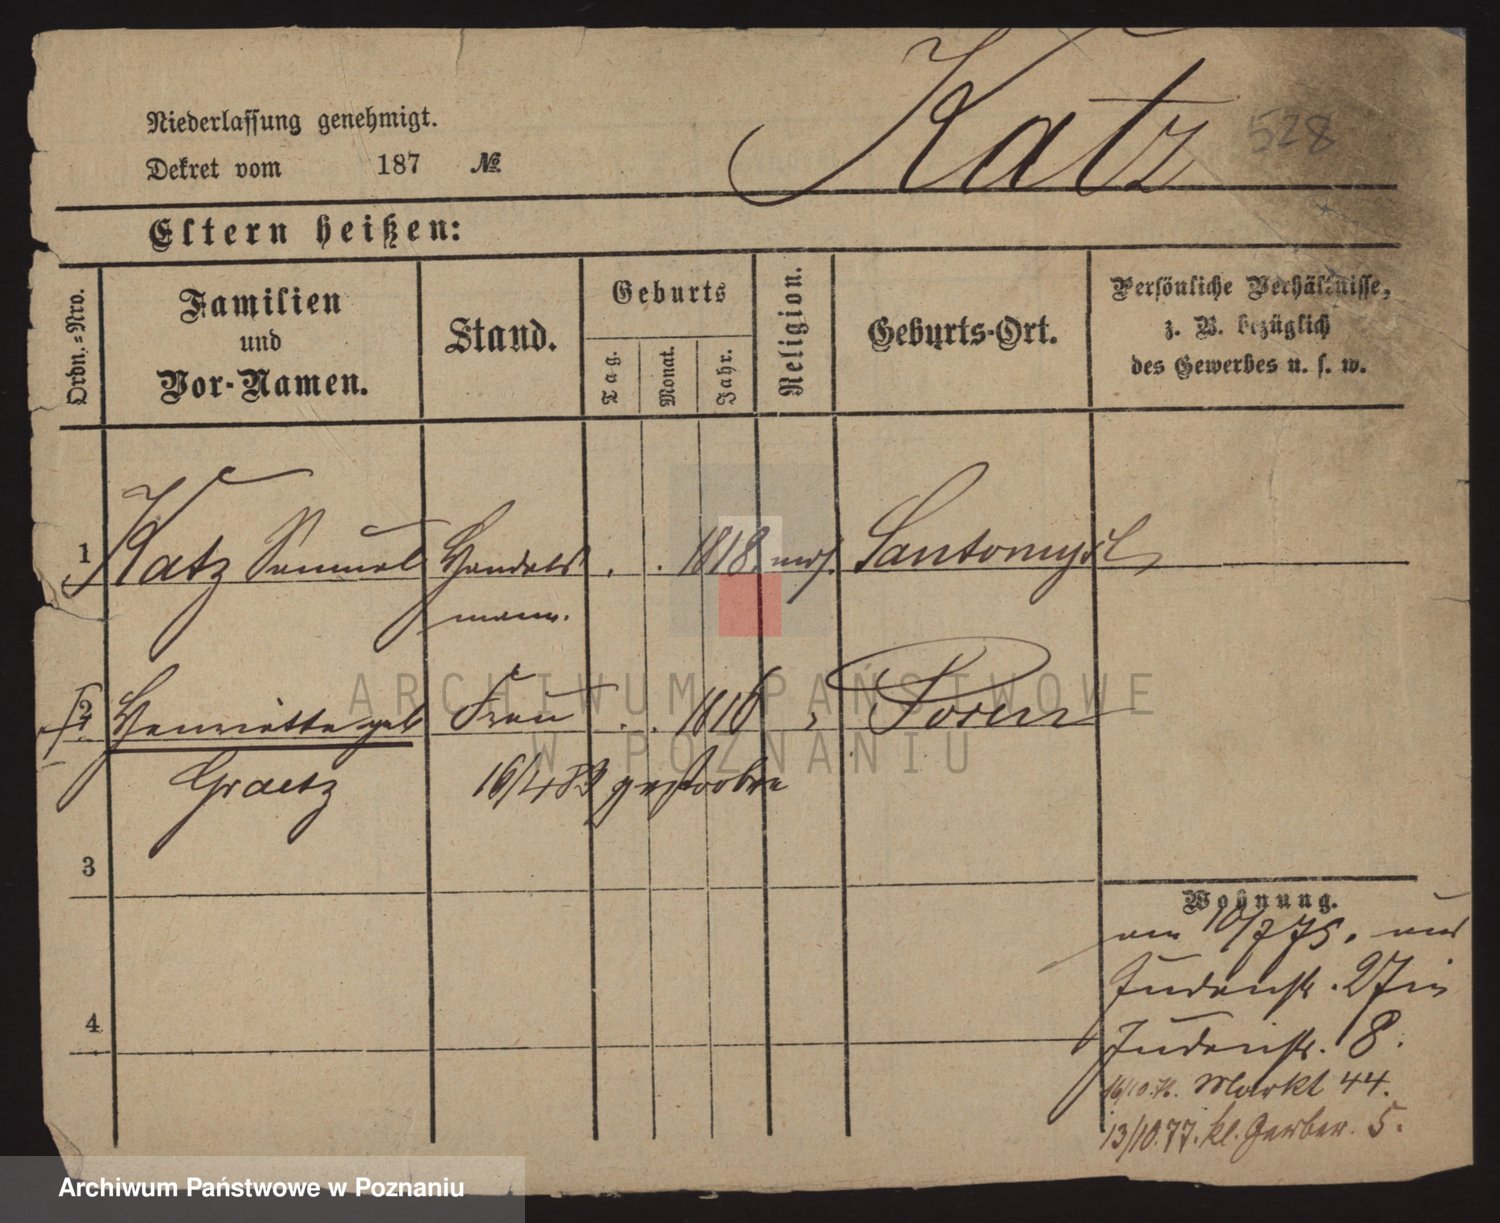 Niederlassung genehmigt.
Dekret vom 187 №
Katz
528
Eltern heißen:
Ordn.-Nro.
Familien
und
Vor-Namen.
Stand.
Geburts
Tag.
Monat.
Jahr.
Religion.
Geburts-Ort.
Persönliche Verhältnisse,
z. B. bezüglich
des Gewerbes u. s. w.
1 Katz Samuel Handels . . 1818 mos. Santomysl
mann.
2 Henriette geb Frau . . 1816 " Posen
Graetz 16/4 82 gestorben
3
4
Wohnung.
am 10/7 75. aus
Judenstr. 27 in
Judenstr. 8.
16/10.76. Markt 44.
13/10.77. kl. Gerber. 5.
ARCHIWUM PAŃSTWOWE
W POZNANIU
Archiwum Państwowe w Poznaniu